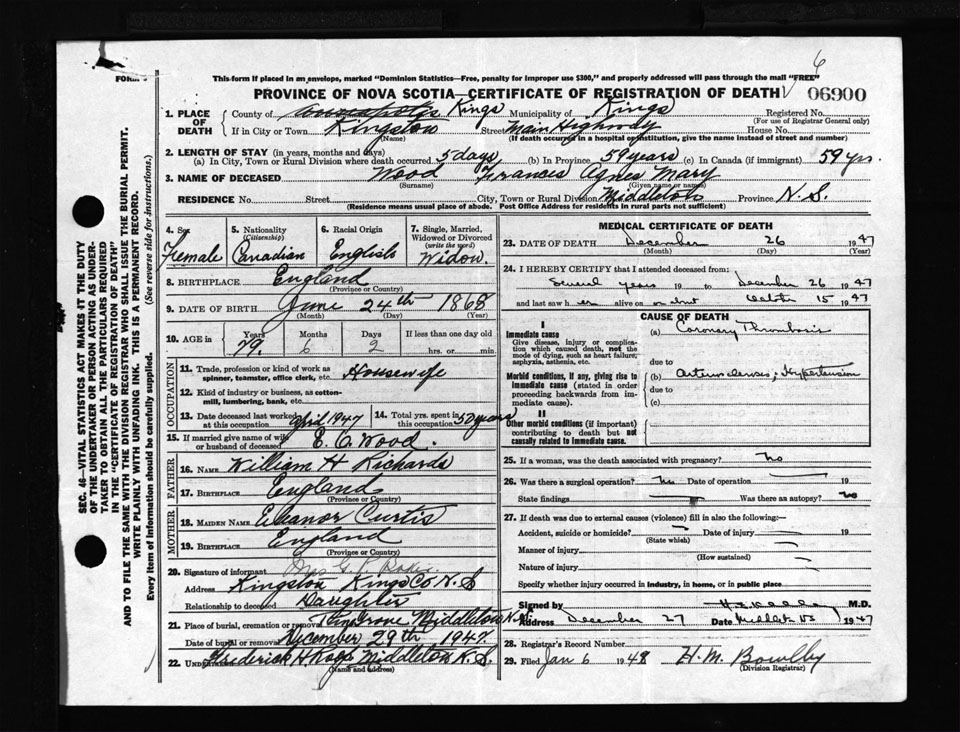 6
FORM
This form if placed in an envelope, marked "Dominion Statistics—Free, penalty for improper use $300," and properly addressed will pass through the mail "FREE"
PROVINCE OF NOVA SCOTIA—CERTIFICATE OF REGISTRATION OF DEATH 06900
1. PLACE OF DEATH County of Kings Municipality of Kings Registered No.
(For use of Registrar General only)
If in City or Town Kingston Street Main Highway House No.
(Name) (If death occurred in a hospital or institution, give the name instead of street and number)
2. LENGTH OF STAY (in years, months and days)
(a) In City, Town or Rural Division where death occurred 5 days (b) In Province 59 years (c) In Canada (if immigrant) 59 yrs.
3. NAME OF DECEASED Wood Frances Agnes Mary
(Surname) (Given name or names)
RESIDENCE No. Street City, Town or Rural Division Middleton Province N.S.
(Residence means usual place of abode. Post Office Address for residents in rural parts not sufficient)
4. Sex Female
5. Nationality (Citizenship) Canadian
6. Racial Origin English
7. Single, Married, Widowed or Divorced (write the word) Widow.
8. BIRTHPLACE England
(Province or Country)
9. DATE OF BIRTH June 24th 1868
(Month) (Day) (Year)
10. AGE in Years 79. Months 6 Days 2 If less than one day old hrs. or min.
OCCUPATION
11. Trade, profession or kind of work as spinner, teamster, office clerk, etc. Housewife
12. Kind of industry or business, as cotton-mill, lumbering, bank, etc.
13. Date deceased last worked at this occupation April 1947 14. Total yrs. spent in this occupation 50 years
15. If married give name of wife or husband of deceased Wood.
FATHER
16. NAME William H Richards
17. BIRTHPLACE England
(Province or Country)
MOTHER
18. MAIDEN NAME Eleanor Curtis
19. BIRTHPLACE England
(Province or Country)
20. Signature of informant Mrs G.
Address Kingston Kings Co N.S
Relationship to deceased Daughter
21. Place of burial, cremation or removal Middleton N.S.
Date of burial or removal December 29th 1947
22. Undertaker Frederick H Middleton N.S.
(Name and address)
MEDICAL CERTIFICATE OF DEATH
23. DATE OF DEATH December 26 1947
(Month) (Day) (Year)
24. I HEREBY CERTIFY that I attended deceased from:
Several years 19 to December 26 1947
and last saw her alive on or abt October 15 1947
CAUSE OF DEATH
I
Immediate cause
Give disease, injury or complication which caused death, not the mode of dying, such as heart failure, asphyxia, asthenia, etc.
(a) Coronary Thrombosis
due to
Morbid conditions, if any, giving rise to immediate cause (stated in order proceeding backwards from immediate cause).
(b) Hypertension
due to
(c)
II
Other morbid conditions (if important) contributing to death but not causally related to immediate cause.
25. If a woman, was the death associated with pregnancy? no
26. Was there a surgical operation? no Date of operation 19
State findings Was there an autopsy? no
27. If death was due to external causes (violence) fill in also the following:—
Accident, suicide or homicide? Date of injury 19
(State which)
Manner of injury
(How sustained)
Nature of injury
Specify whether injury occurred in industry, in home, or in public place
Signed by M.D.
Address December 27 Date 1947
28. Registrar's Record Number
29. Filed Jan 6 1948 H.M. Bowlby
(Division Registrar)
SEC. 46—VITAL STATISTICS ACT MAKES IT THE DUTY
OF THE UNDERTAKER OR PERSON ACTING AS UNDERTAKER TO OBTAIN ALL THE PARTICULARS REQUIRED
IN THE "CERTIFICATE OF REGISTRATION OF DEATH"
AND TO FILE THE SAME WITH THE DIVISION REGISTRAR WHO SHALL ISSUE THE BURIAL PERMIT.
WRITE PLAINLY WITH UNFADING INK. THIS IS A PERMANENT RECORD.
Every item of information should be carefully supplied. (See reverse side for instructions.)